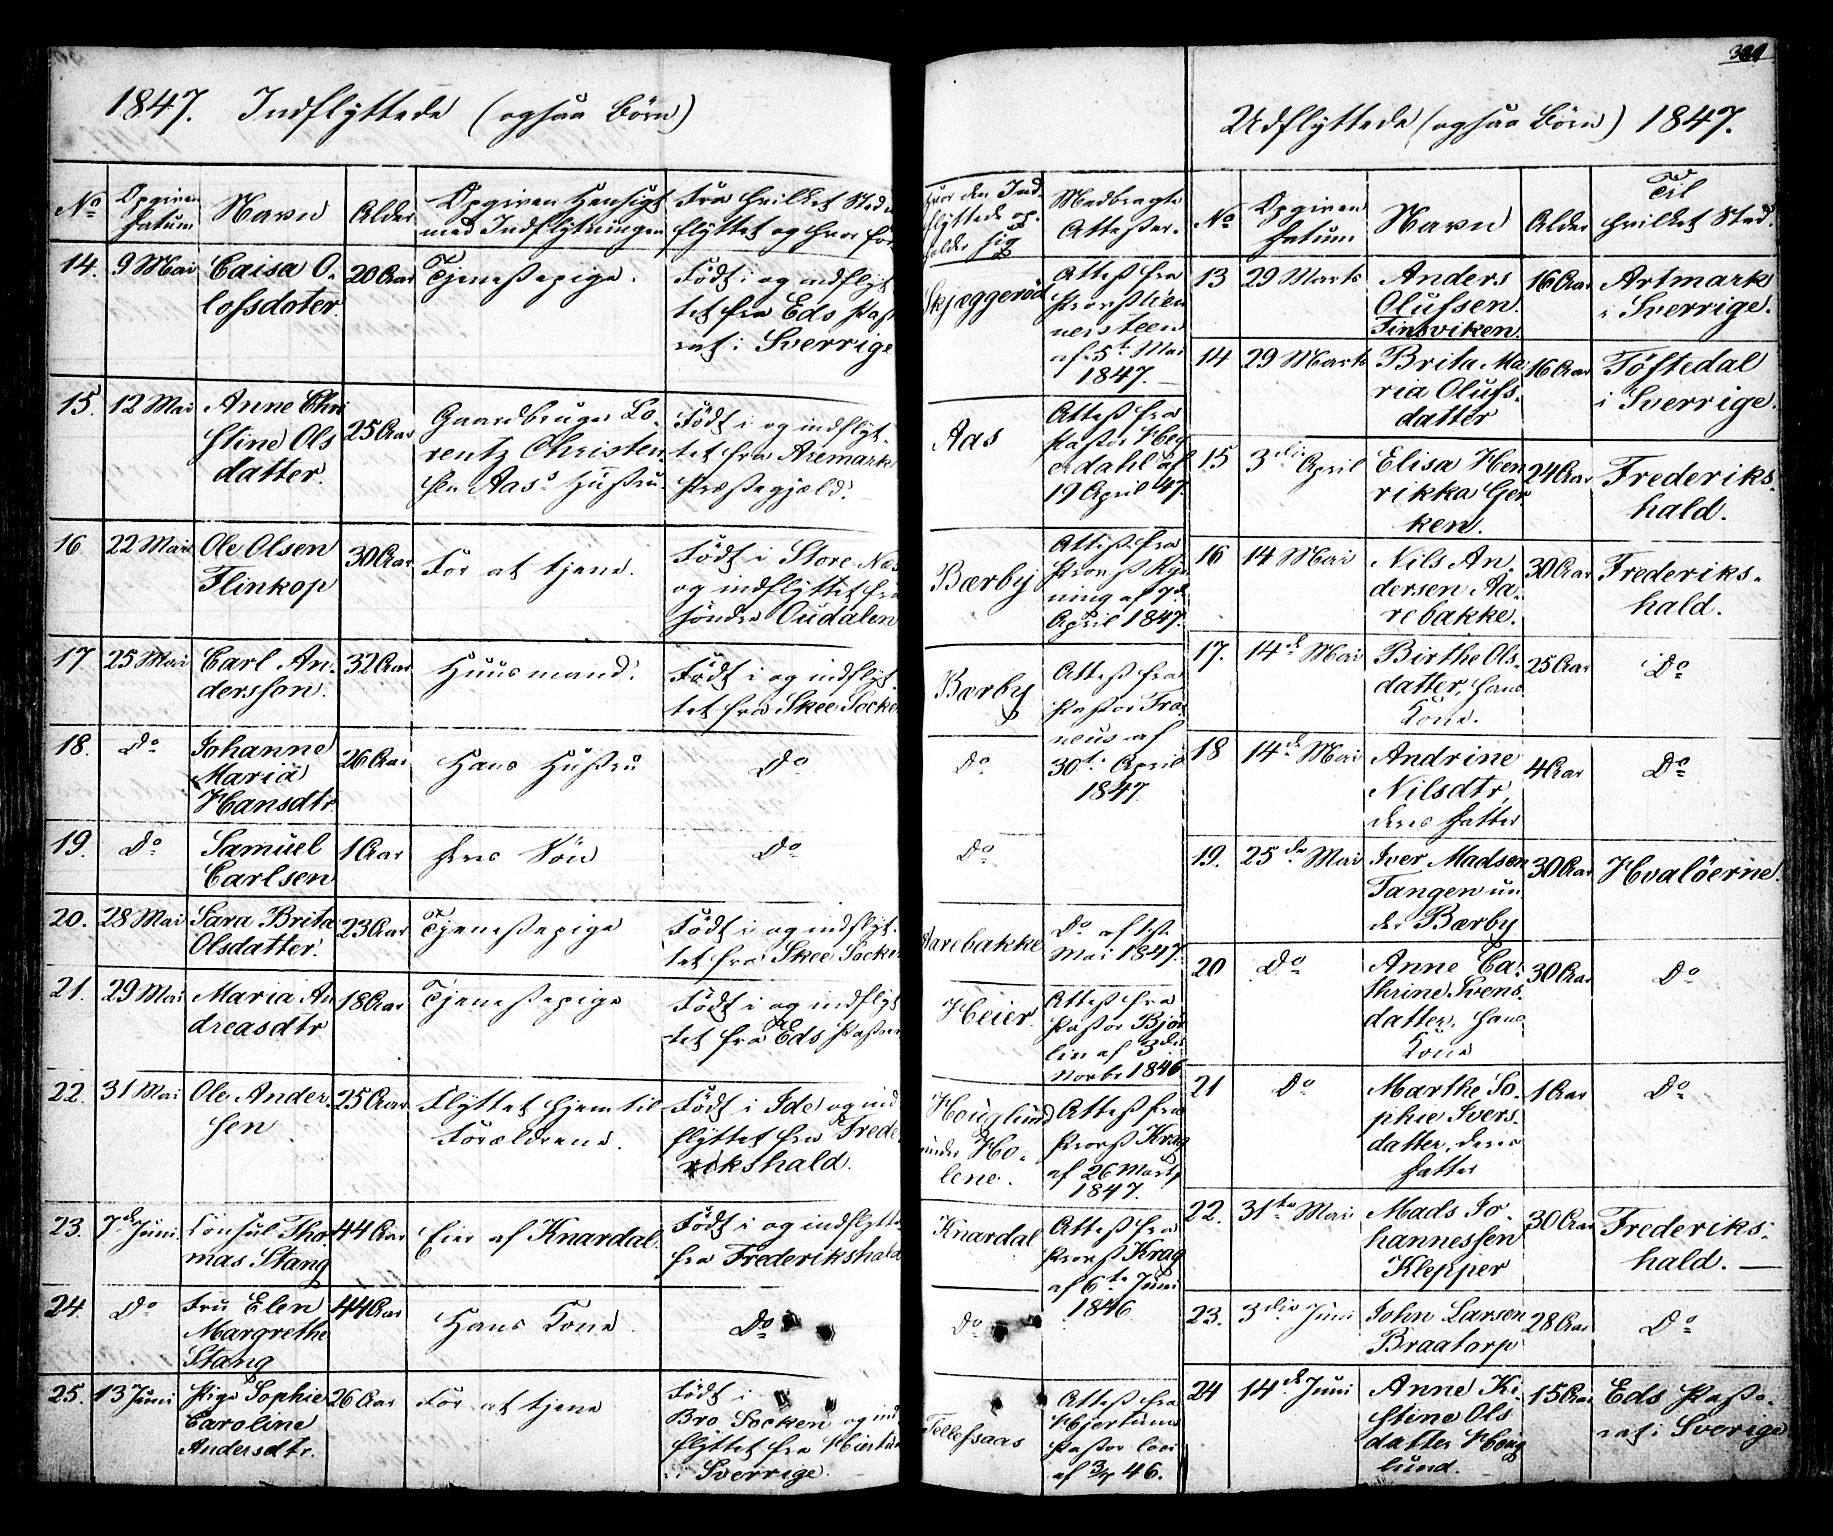 1847. Indflyttede (ogsaa Børn)
No
Opgiven Datum
Navn
Alder
Opgiven Hensigt med Indflytningen
Fra hvilket Sted flyttet og hvor
Hvor den Indflyttede opholder sig
Medbragte Attester.
14. 9 Mai
Caisa O-
lofsdoter.
20 Aar
Tjenestepige.
Født i og indflyt
tet fra Eds Past
rat i Sverrige
Skjæggerød
Attest fra
af 5te Mai
1847.
15. 12 Mai
Anne Chri
stine Ols
datter.
25 Aar
Gaardbruger Lo-
rentz Christen
sen Aas's Hustru.
Født i og indflyt-
tet fra Aremark
Præstegjæld.
Aas
Attest fra
Pastor Heg
erdahl af
19 April 47.
16. 22 Mai
Ole Olsen
Flinkop
30 Aar
For at tjene.
Født i Store Næs
og indflyttet fra
søndre Oudalen
Bærby
Attest fra
Provst Ryn
ning af 7de
April 1847.
17. 25 Mai
Carl An-
derssøn.
32 Aar
Huusmand.
Født i og indflyt
tet fra Skee Socken
Bærby
Attest fra
Pastor Fra
neus af
30te April
1847
18. Do
Johanne
Maria
Hansdtr
26 Aar
Hans Hustru
Do
Do
19. Do
Samuel
Carlsen
1 Aar
Deres Søn
Do
Do
20. 28 Mai
Sara Brita
Olsdatter.
23 Aar
Tjenestepige
Født i og indflyt-
tet fra Skee Socken
Aarebakke
Do af 1ste
Mai 1847.
21. 29 Mai
Maria An
dreasdtr
18 Aar
Tjenestepige
Født i og indflyt
tet fra Eds Pastorat
Heier.
Attest fra
Pastor Bjør
lin af 3die
Novbr 1846
22. 31 Mai
Ole Ander-
sen
25 Aar
Flyttet hjem til
Forældrene.
Født i Ide og ind
flyttet fra Frede-
rikshald.
Houglund
under Ho-
lene.
Attest fra
Provst Krag
af 26 Marts
1847.
23. 7de Juni
Consul Tho
mas Stang
44 Aar
Eier af Knardal.
Født i og indflyttet
fra Frederikshald
Knardal
Attest fra
Provst Krag
af 6te Juni
1846
24. Do
Fru Elen
Margrethe
Stang
44 Aar
Hans Kone.
Do
Do
25. 13 Juni
Pige Sophie
Caroline
Andersdtr.
26 Aar
For at tjene
Født i
Bro Socken og ind
flyttet fra Hiertum
i Sverrige.
Tellefsaas
Attest fra
Hjertum
Pastor
af 3/4 46.
Udflyttede (ogsaa Børn) 1847.
No
Opgiven Datum
Navn
Alder
Til
hvilket Sted.
13 29 Marts
Anders
Olufsen
Tinsviken.
16 Aar
Artmark
i Sverrige.
14 29 Marts
Brita Ma
ria Olufs-
datter
16 Aar
Töftedal
i Sverrige.
15 3die April
Elisa Hen
rikka Ger
ken.
24 Aar
Frederiks-
hald.
16 14 Mai
Nils An-
dersen Aa-
rebakke.
30 Aar
Frederiks-
hald.
17. 14de Mai
Birthe Ols-
datter, hans
Kone.
25 Aar
Do
18 14de Mai
Andrine
Nilsdtr,
deres Datter
4 Aar
Do
19. 25de Mai
Iver Madsen
Tangen un
der Bærby
30 Aar
Hvaløerne.
20 Do
Anne Ca-
thrine Svens-
datter, hans
Kone
30 Aar
Do
21 Do
Marthe So-
phie Ivers-
datter, deres
Datter
1 Aar
Do
22. 31te Mai
Mads Jo-
hannessen
Klepper
30 Aar
Frederiks-
hald.
23. 3die Juni
John Larsen
Braatorp
28 Aar
Do
24 14de Juni
Anne Ki-
stine Ols
datter Houg
lund.
15 Aar
Eds Pasto-
rat i Sverige